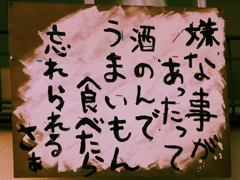 嫌な事が
あったって
酒のんで
うまいもん
食べたら
忘れられる
さぁ